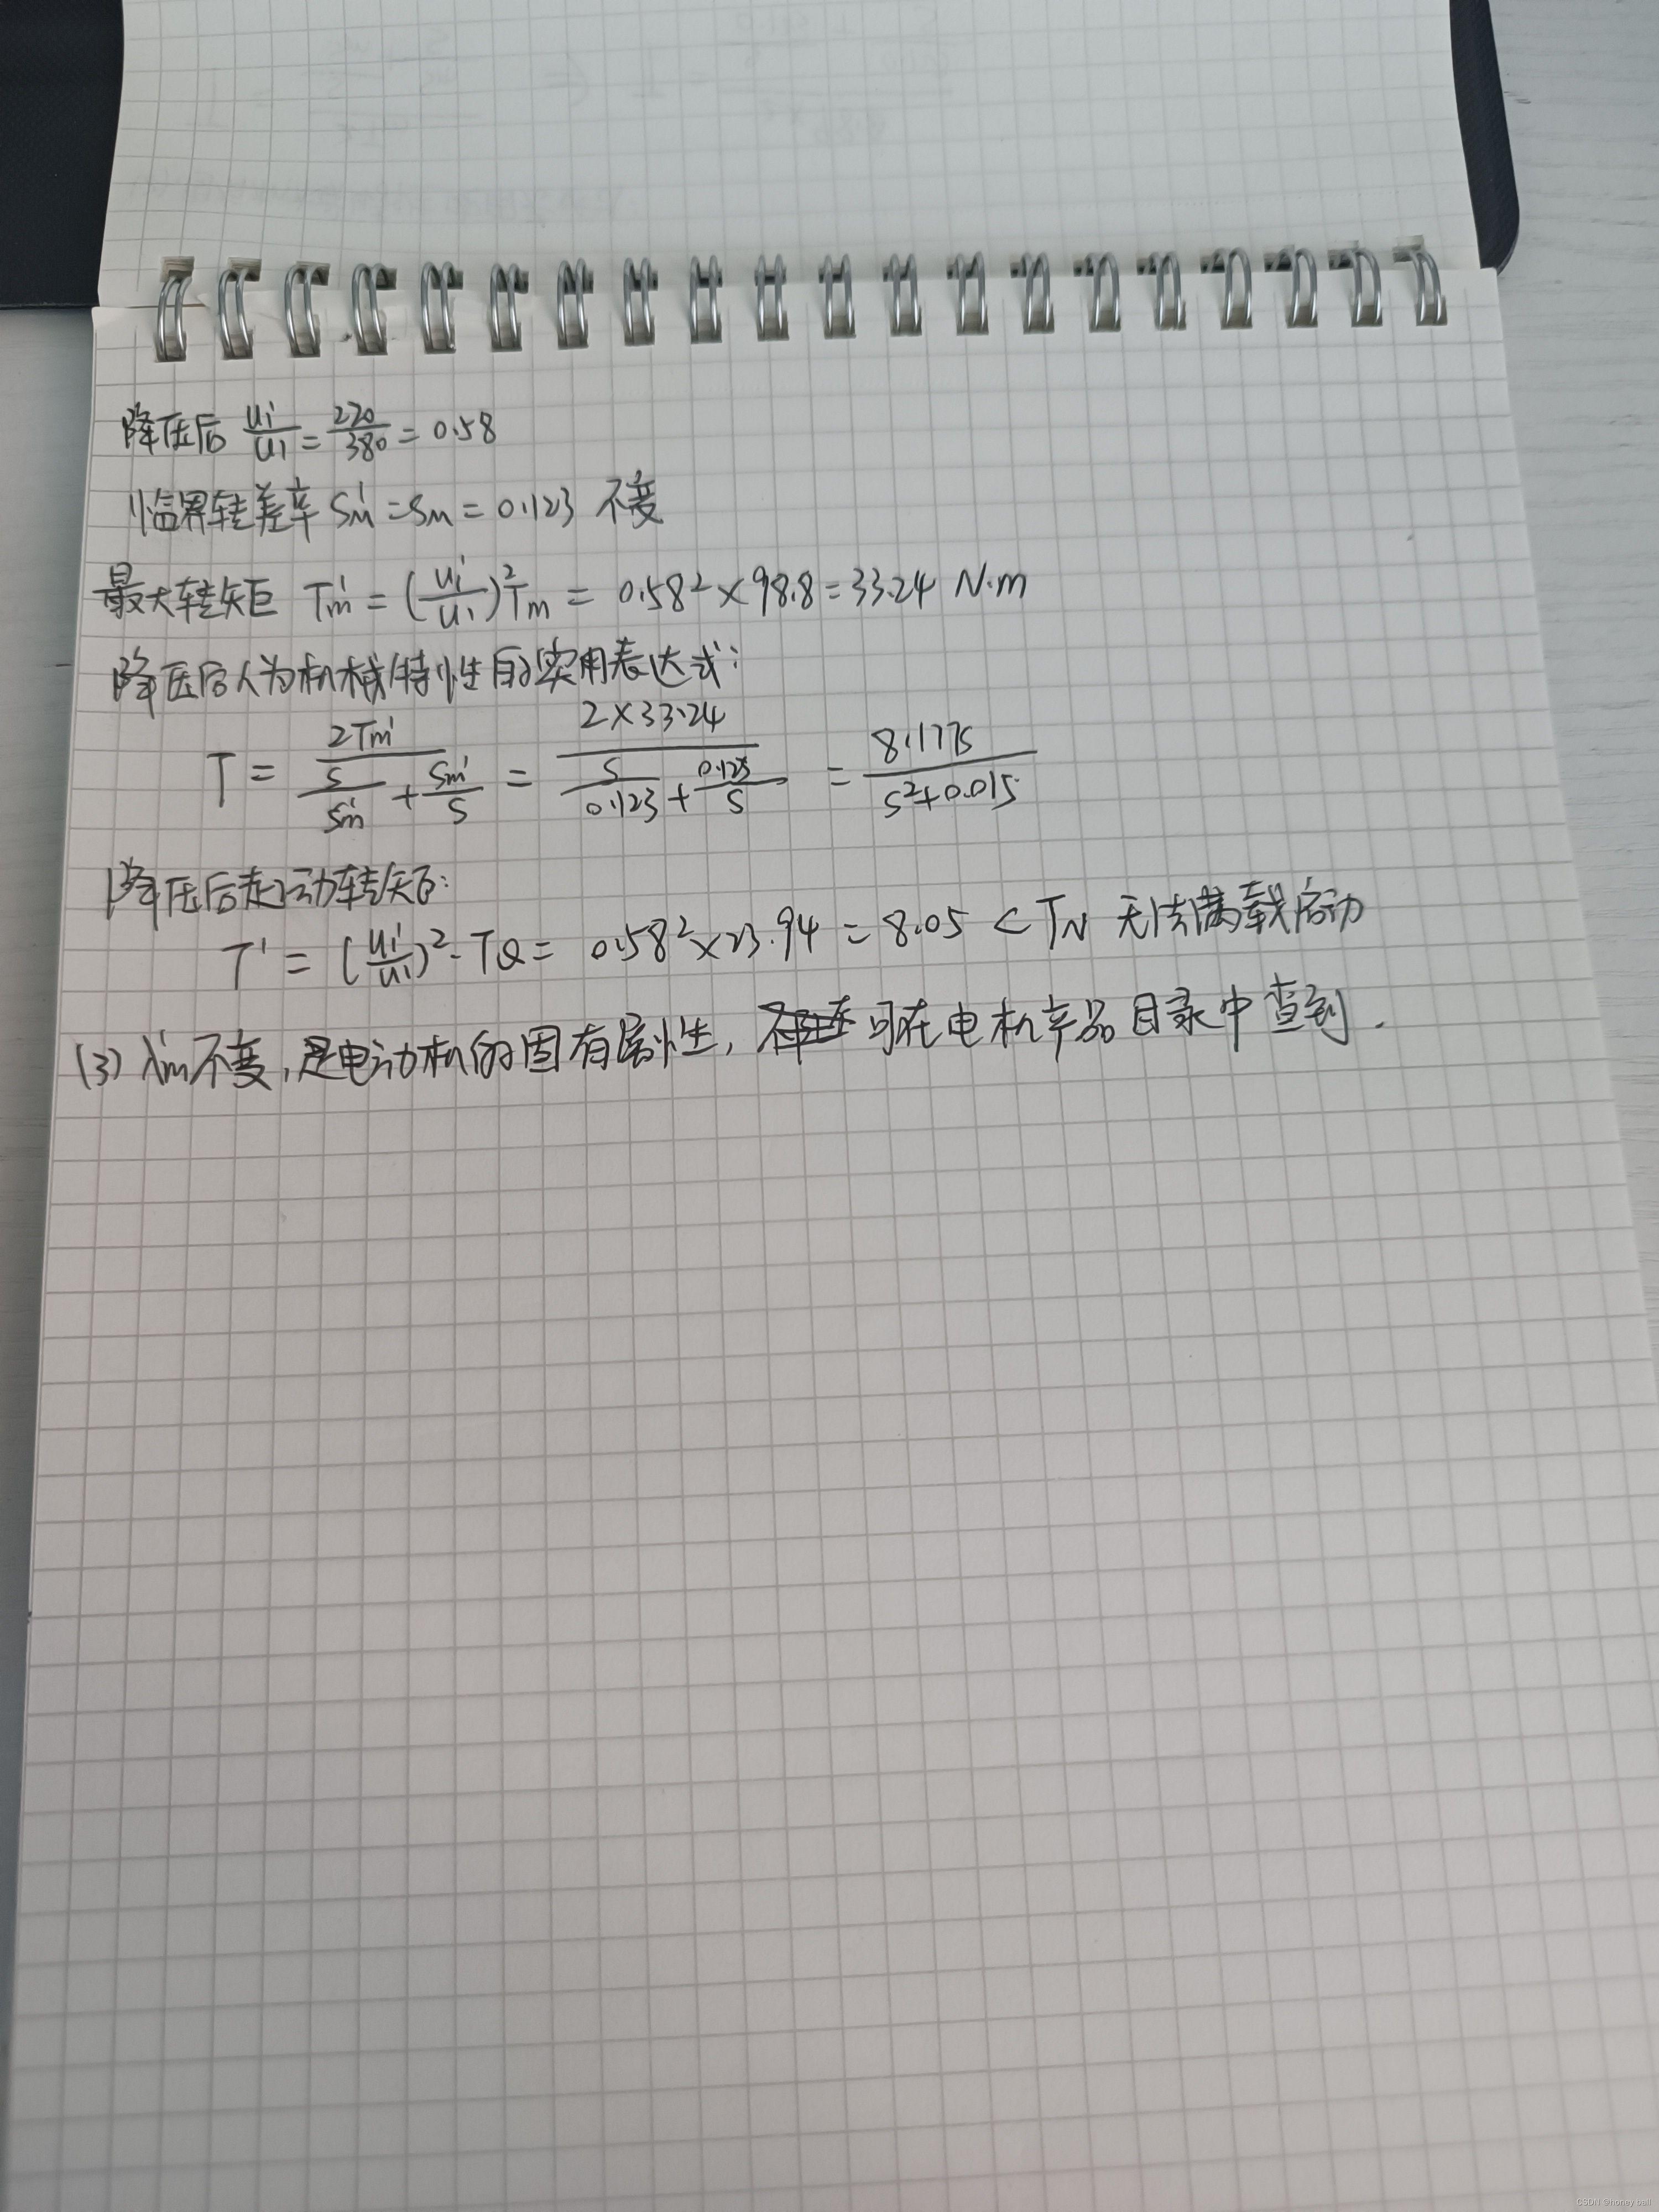 降压后 U₁'/U₁ = 220/380 = 0.58
临界转差率 Sm' = Sm = 0.123 不变
最大转矩 Tm' = (U₁'/U₁)² Tm = 0.58² × 98.8 = 33.24 N·m
降压后人为机械特性的实用表达式:
T = 2Tm' / (S/Sm' + Sm'/S) = 2×33.24 / (S/0.123 + 0.123/S) = 8.177S / (S²+0.015)
降压后起动转矩:
T' = (U₁'/U₁)²·TQ = 0.58² × 23.94 = 8.05 < TN 无法满载启动
(3) λm不变, 是电动机的固有属性, 可在电机产品目录中查到.
CSDN @honey ball